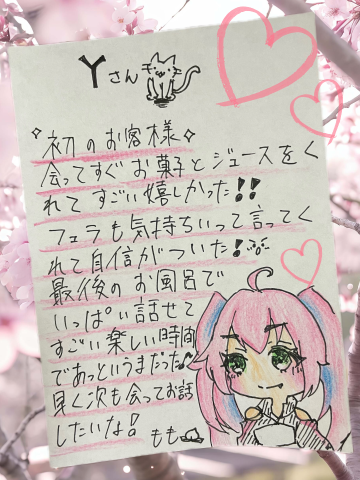 Yさん
✧初のお客様✧
会ってすぐお菓子とジュースをく
れてすごい嬉しかった!!
フェラも気持ちいって言ってく
れて自信がついた!
最後のお風呂で
いっぱい話せて
すごい楽しい時間
であっというまだった♪
早く次も会ってお話
したいな!
もも